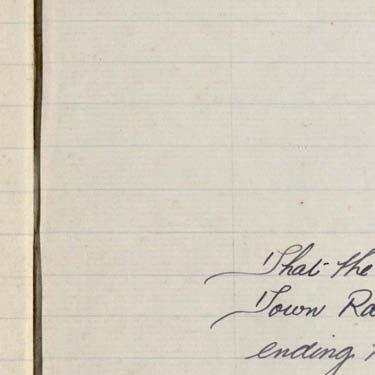 That the
Town Ra
ending